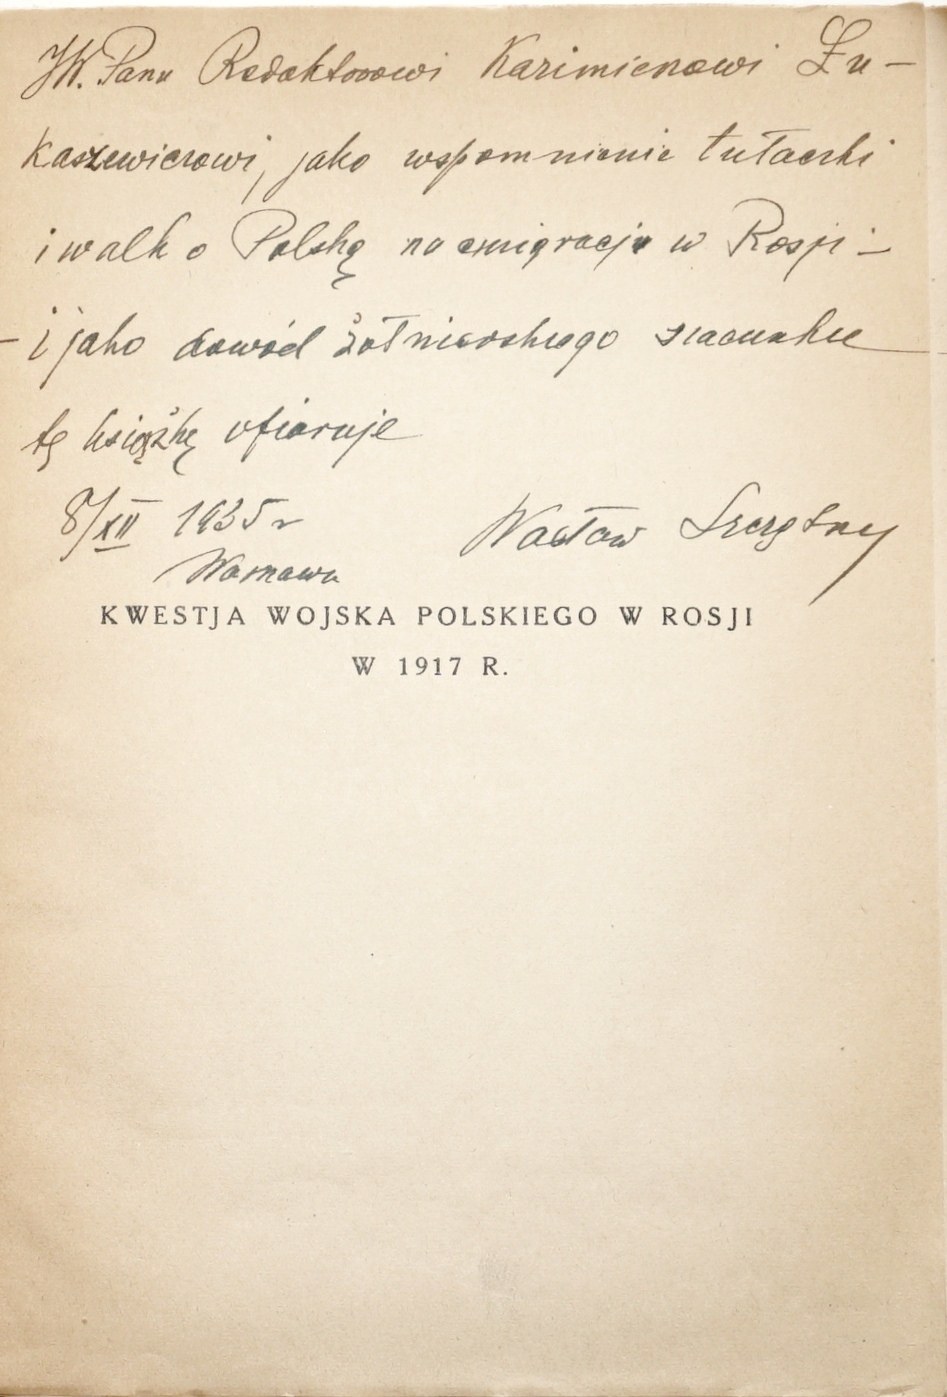 JW. Panu Redaktorowi Kazimierzowi Łu-
kaszewiczowi, jako wspomnienie tułaczki
i walk o Polskę na emigracji w Rosji -
- i jako dowód żołnierskiego szacunku
tę książkę ofiaruje
8/XII 1935 r
Wacław Szczęsny
Warszawa
KWESTJA WOJSKA POLSKIEGO W ROSJI
W 1917 R.